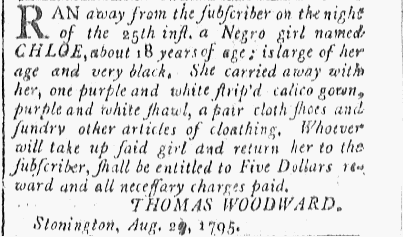 RAN away from the ſubſcriber on the night
of the 25th inſt. a Negro girl named
CHLOE, about 18 years of age; is large of her
age and very black. She carried away with
her, one purple and white ſtrip'd calico gown,
purple and white ſhawl, a pair cloth ſhoes and
ſundry other articles of cloathing. Whoever
will take up ſaid girl and return her to the
ſubſcriber, ſhall be entitled to Five Dollars re-
ward and all neceſſary charges paid.
THOMAS WOODWARD.
Stonington, Aug. 1795.